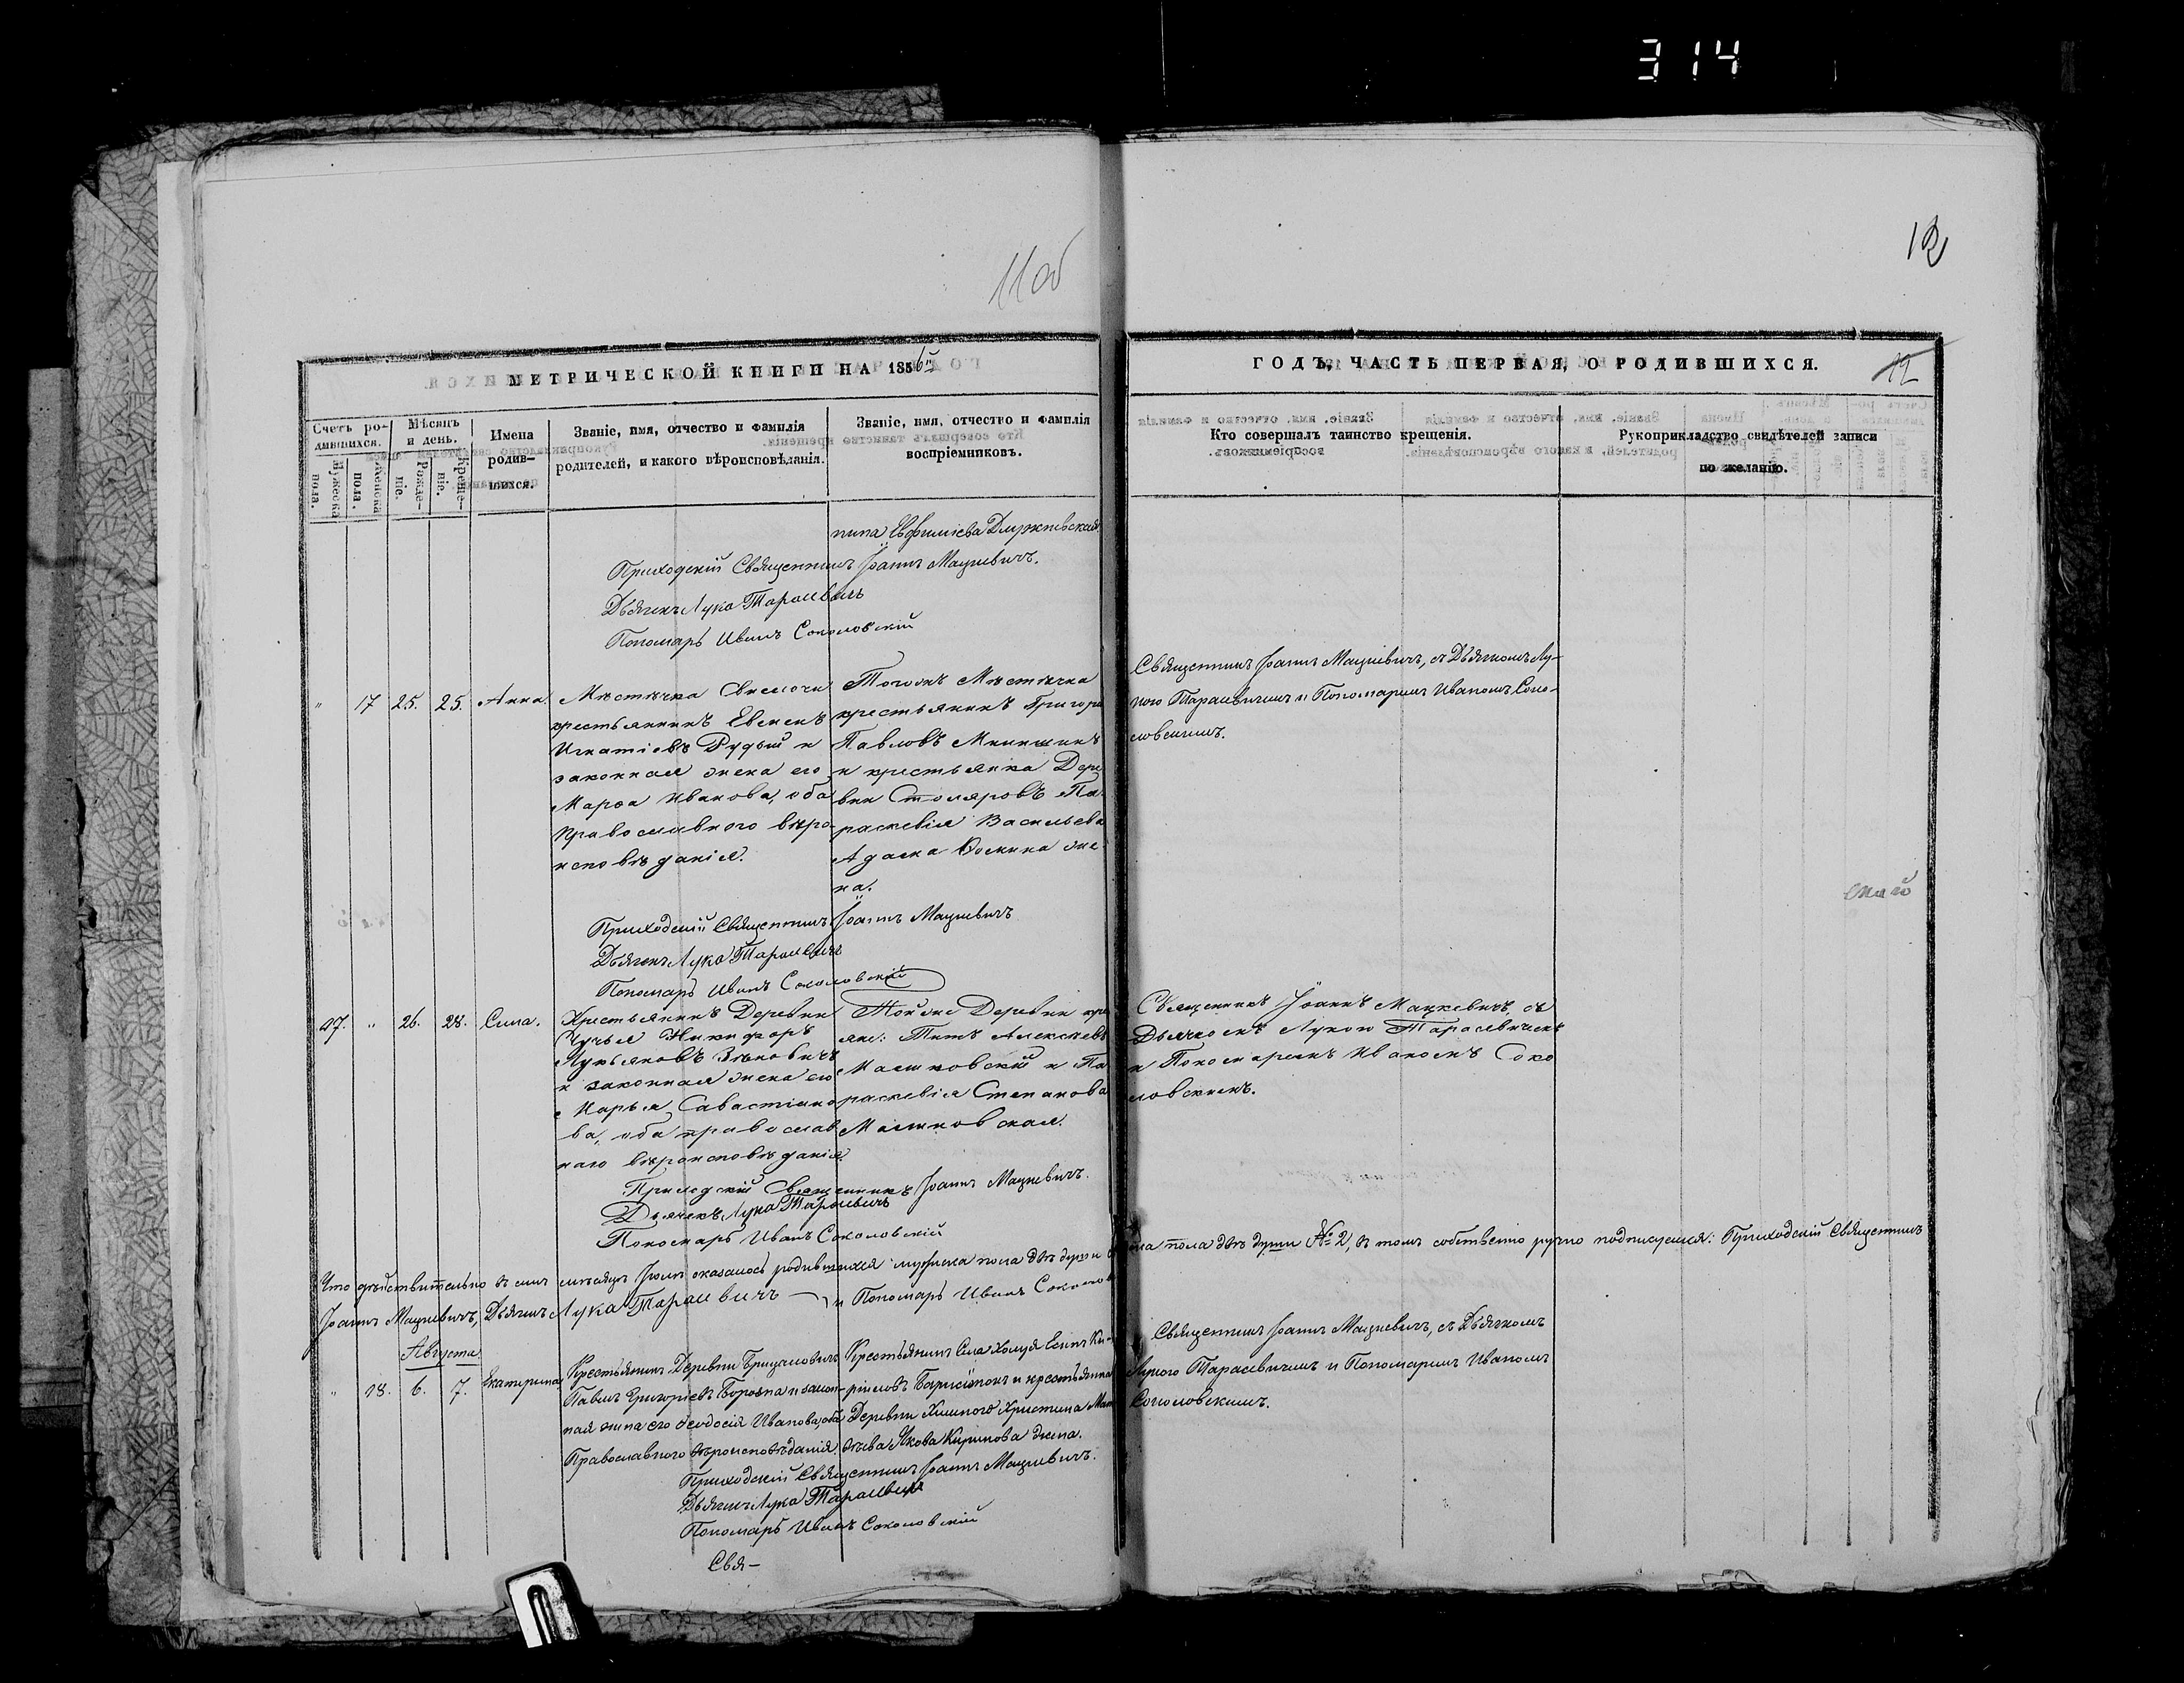 314
12
11об
МЕТРИЧЕСКОЙ КНИГИ НА 1856й
ГОДЪ, ЧАСТЬ ПЕРВАЯ, О РОДИВШИХСЯ.
12
Счетъ родившихся.
Мужеска пола.
Женска пола.
Мѣсяцъ и день.
Рожденіе.
Крещеніе.
Имена родившихся.
Званіе, имя, отчество и фамилія
родителей, и какого вѣроисповѣданія.
Званіе, имя, отчество и фамилія
воспріемниковъ.
Кто совершалъ таинство крещенія.
Рукоприкладство свидѣтелей записи
по желанію.
Приходскій Священникъ Іоаннъ Мацкевичъ.
Дьячекъ Лука Тарасевичъ
Пономарь Иванъ Соколовскій
" 17 25. 25. Анна.
Мѣстечка Свислочи
крестьянинъ Евменъ
Игнатіевъ Рудый и
законная жена его
Марѳа Иванова, оба
Православного вѣро-
исповѣданія.
Тогожъ Мѣстѣчка
крестьянинъ Григорій
Павловъ
и крестьянка Дере
вни Столяровъ Па
раскевія Васильева
Адама жe
на.
Священникъ Іоаннъ Мацкевичъ, съ Дьячкомъ Лу-
кою Тарасевичемъ и Пономаремъ Иваномъ Соко-
ловскимъ.
Приходскій Священникъ Іоаннъ Мацкевичъ
Дьячекъ Лука Тарасевичъ
Пономарь Иванъ Соколовскій
17. " 26. 28. Сила.
Крестьянинъ Деревни
Чучья Никифоръ
Лукьяновъ Зѣновичъ
и законная жена его
Марья Савастіано
ва, оба православ
наго вѣроисповѣданія.
Тойже Деревни кре
яне: Титъ Алексѣевъ
и Па
раскевія Степанова
Священникъ Іоаннъ Мацкевичъ, съ
Дьячкомъ Лукою Тарасевичемъ
и Пономаремъ Иваномъ Соко
ловскимъ.
Приходскій Священникъ Іоаннъ Мацкевичъ.
Дьячекъ Лука Тарасевичъ
Пономарь Иванъ Соколовскій
Что дѣйствительно въ семъ мѣсяцѣ Іюлѣ оказалось родившихся мужеска пола двѣ души
ска пола двѣ души № 2, въ томъ собственно ручно подписуемся: Приходскій Священникъ
Іоаннъ Мацкевичъ, Дьячекъ Лука Тарасевичъ и Пономарь Иванъ Соколов
Августа
" 18. 6. 7. Екатерина
Крестьянинъ Деревни
Павелъ Григорьевъ и закон-
ная жена его Ѳеодосія Иванова, оба
Православнаго вѣроисповѣданія.
Крестьянинъ Села Холуя Есипъ Ки-
и крестьянка
Деревни Христина Мат
вѣева Якова Киринова жена.
Священникъ Іоаннъ Мацкевичъ, съ Дьячкомъ
Лукою Тарасевичемъ и Пономаремъ Иваномъ
Соколовскимъ.
Приходскій Священникъ Іоаннъ Мацкевичъ.
Дьячекъ Лука Тарасевичъ
Пономарь Иванъ Соколовскій
Свя-